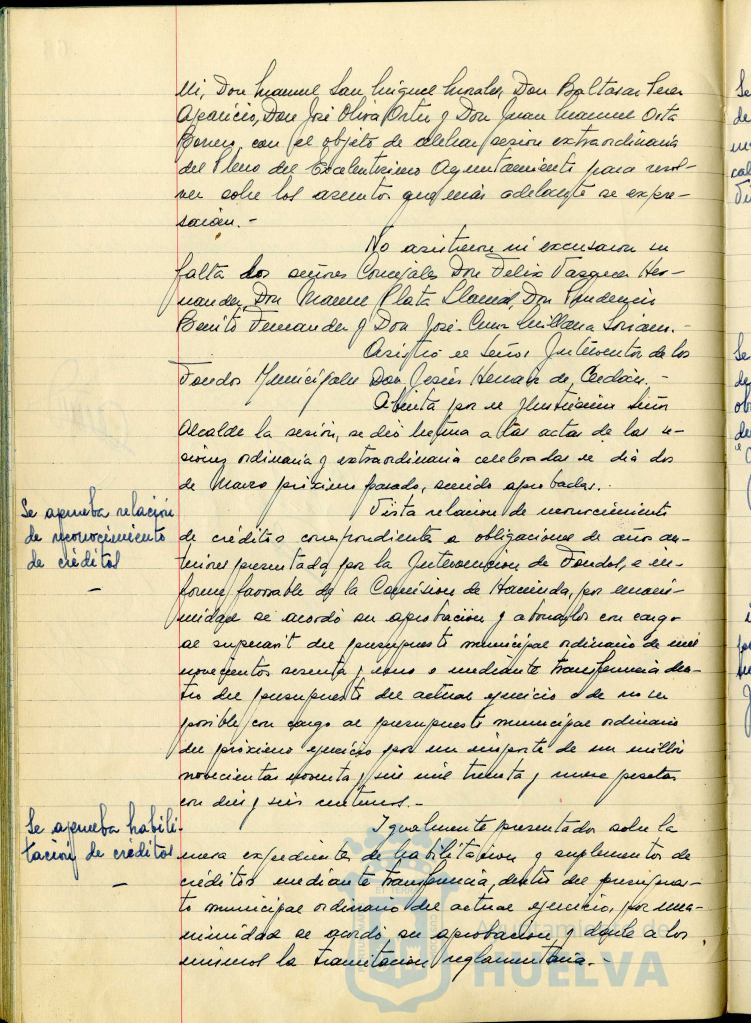 Mi, Don Manuel San Miguel Morales, Don Baltasar Perez
Aparicio, Don José Oliva Ortiz y Don Juan Manuel Orta
Borrero, con el objeto de celebrar sesión extraordinaria
del Pleno del Excelentísimo Ayuntamiento para resol-
ver sobre los asuntos que más adelante se expre-
sarán.-
No asistieron ni excusaron su
falta los señores Concejales Don Felix Vazquez Her-
nandez, Don Manuel Plata Don Prudencio
Benito Fernandez y Don José Cruz Soriano.-
Asistió el Señor Interventor de los
Fondos Municipales Don Jesús de Cerdán.-
Abierta por el Ilustrísimo Señor
Alcalde la sesión, se dió lectura a las actas de las se-
siones ordinaria y extraordinaria celebradas el dia dos
de Marzo próximo pasado, siendo aprobadas.
Se aprueba relación
de reconocimiento
de créditos
-
Vista relación de reconocimiento
de créditos correspondiente a obligaciones de años an-
teriores presentada por la Intervención de Fondos, e in-
forme favorable de la Comisión de Hacienda, por unani-
midad se acordó su aprobación y abonarlos con cargo
al superavit del presupuesto municipal ordinario de mil
novecientos sesenta y uno o mediante transferencia den-
tro del presupuesto del actual ejercicio o de no ser
posible con cargo al presupuesto municipal ordinario
del próximo ejercicio por un importe de un millón
novecientas noventa y seis mil treinta y nueve pesetas
con diez y seis centimos.-
Se aprueba habili-
tación de créditos
-
Igualmente presentados sobre la
mesa expedientes de habilitacion y suplementos de
créditos mediante transferencia, dentro del presupues-
to municipal ordinario del actual ejercicio, por una-
nimidad se acordó su aprobación, y darle a los
mismos la tramitación reglamentaria.-
Ayuntamiento de
HUELVA